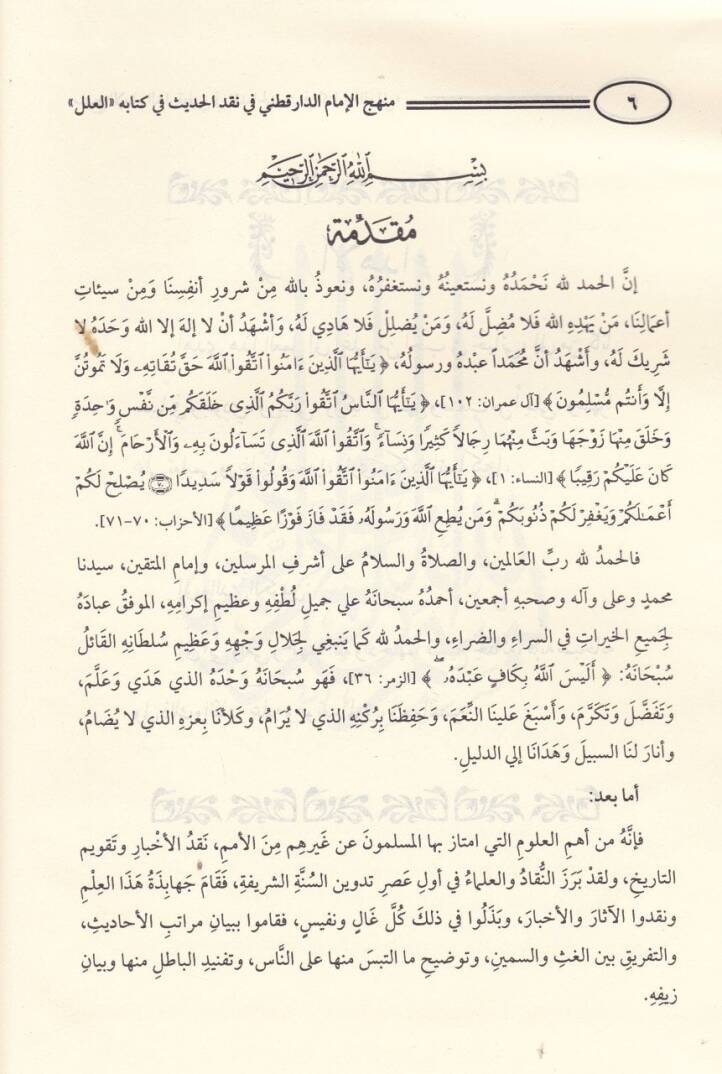 ٦ منهج الإمام الدارقطني في نقد الحديث في كتابه «العلل»
بِسْمِ اللَّهِ الرَّحْمَٰنِ الرَّحِيمِ
مُقَدِّمة
إنَّ الحمد لله نَحْمَدُهُ ونستعينُهُ ونستغفرُهُ، ونعوذُ بالله مِنْ شرورِ أنفسِنَا وَمِنْ سيئاتِ
أعمَالِنَا، مَنْ يَهْدِهِ الله فَلا مُضِلَّ لَهُ، وَمَنْ يُضلِلْ فَلا هَادِي لَهُ، وَأشْهَدُ أنْ لا إلهَ إلا الله وَحَدَهُ لا
شَرِيكَ لَهُ، وأشْهَدُ أنَّ مُحَمَداً عبْدهُ ورسولُهُ، ﴿ يَـٰٓأَيُّهَا ٱلَّذِينَ ءَامَنُوا۟ ٱتَّقُوا۟ ٱللَّهَ حَقَّ تُقَاتِهِۦ وَلَا تَمُوتُنَّ
إِلَّا وَأَنتُم مُّسْلِمُونَ ﴾[آل عمران: ١٠٢]، ﴿ يَـٰٓأَيُّهَا ٱلنَّاسُ ٱتَّقُوا۟ رَبَّكُمُ ٱلَّذِى خَلَقَكُم مِّن نَّفْسٍ وَٰحِدَةٍ
وَخَلَقَ مِنْهَا زَوْجَهَا وَبَثَّ مِنْهُمَا رِجَالًا كَثِيرًا وَنِسَآءً ۚ وَٱتَّقُوا۟ ٱللَّهَ ٱلَّذِى تَسَآءَلُونَ بِهِۦ وَٱلْأَرْحَامَ ۚ إِنَّ ٱللَّهَ
كَانَ عَلَيْكُمْ رَقِيبًا ﴾[النساء: ١]، ﴿ يَـٰٓأَيُّهَا ٱلَّذِينَ ءَامَنُوا۟ ٱتَّقُوا۟ ٱللَّهَ وَقُولُوا۟ قَوْلًا سَدِيدًا ۝٧٠ يُصْلِحْ لَكُمْ
أَعْمَـٰلَكُمْ وَيَغْفِرْ لَكُمْ ذُنُوبَكُمْ ۗ وَمَن يُطِعِ ٱللَّهَ وَرَسُولَهُۥ فَقَدْ فَازَ فَوْزًا عَظِيمًا ﴾[الأحزاب: ٧٠-٧١].
فالحمدُ لله ربِّ العَالمين، والصلاةُ والسلامُ على أشرفِ المرسلين، وإمامِ المتقين، سيدنا
محمدٍ وعلى وآله وصحبهِ أجمعين، أحمدُهُ سبحانَهُ علي جميلِ لُطْفِهِ وعظيمِ إكرامِهِ، الموفقُ عبادَهُ
لجميعِ الخيراتِ في السراءِ والضراءِ، والحمدُ لله كَما يَنبغي لجَلالِ وَجْهِهِ وَعَظيمِ سُلطَانِهِ القَائلُ
سُبْحَانَهُ: ﴿ أَلَيْسَ ٱللَّهُ بِكَافٍ عَبْدَهُۥ ۖ ﴾ [الزمر: ٣٦]، فَهُو سُبحَانَهُ وَحْدَهُ الذي هَدَي وَعَلَّمَ،
وَتَفَضَّلَ وَتَكَرَّمَ، وَأَسْبَغَ عَلينَا النِّعَمَ، وَحَفِظَنَا بِرُكْنِهِ الذي لا يُرَامُ، وكَلأنَا بعزهِ الذي لا يُضَامُ،
وأنارَ لنَا السبيلَ وَهَدَانَا إلي الدليلِ.
أما بعد:
فإنَّهُ من أهمِ العلومِ التي امتاز بها المسلمونَ عن غَيرِهم مِنَ الأممِ، نَقدُ الأخْبارِ وتَقويم
التاريخِ، ولقدْ بَرَزَ النُّقادُ والعلماءُ في أولِ عَصرِ تدوين السُنَّةِ الشريفةِ، فَقَامَ جَهابِذَةُ هَذَا العِلْمِ
ونقدوا الآثارَ والأخبارَ، وبَذَلُوا في ذلكَ كُلَّ غَالٍ ونفيسٍ، فقاموا ببيانِ مراتبِ الأحاديثِ،
والتفريقِ بين الغثِ والسمينِ، وتوضيحِ ما التبسَ منها على النَّاس، وتفنيدِ الباطلِ منها وبيانِ
زيفِهِ.